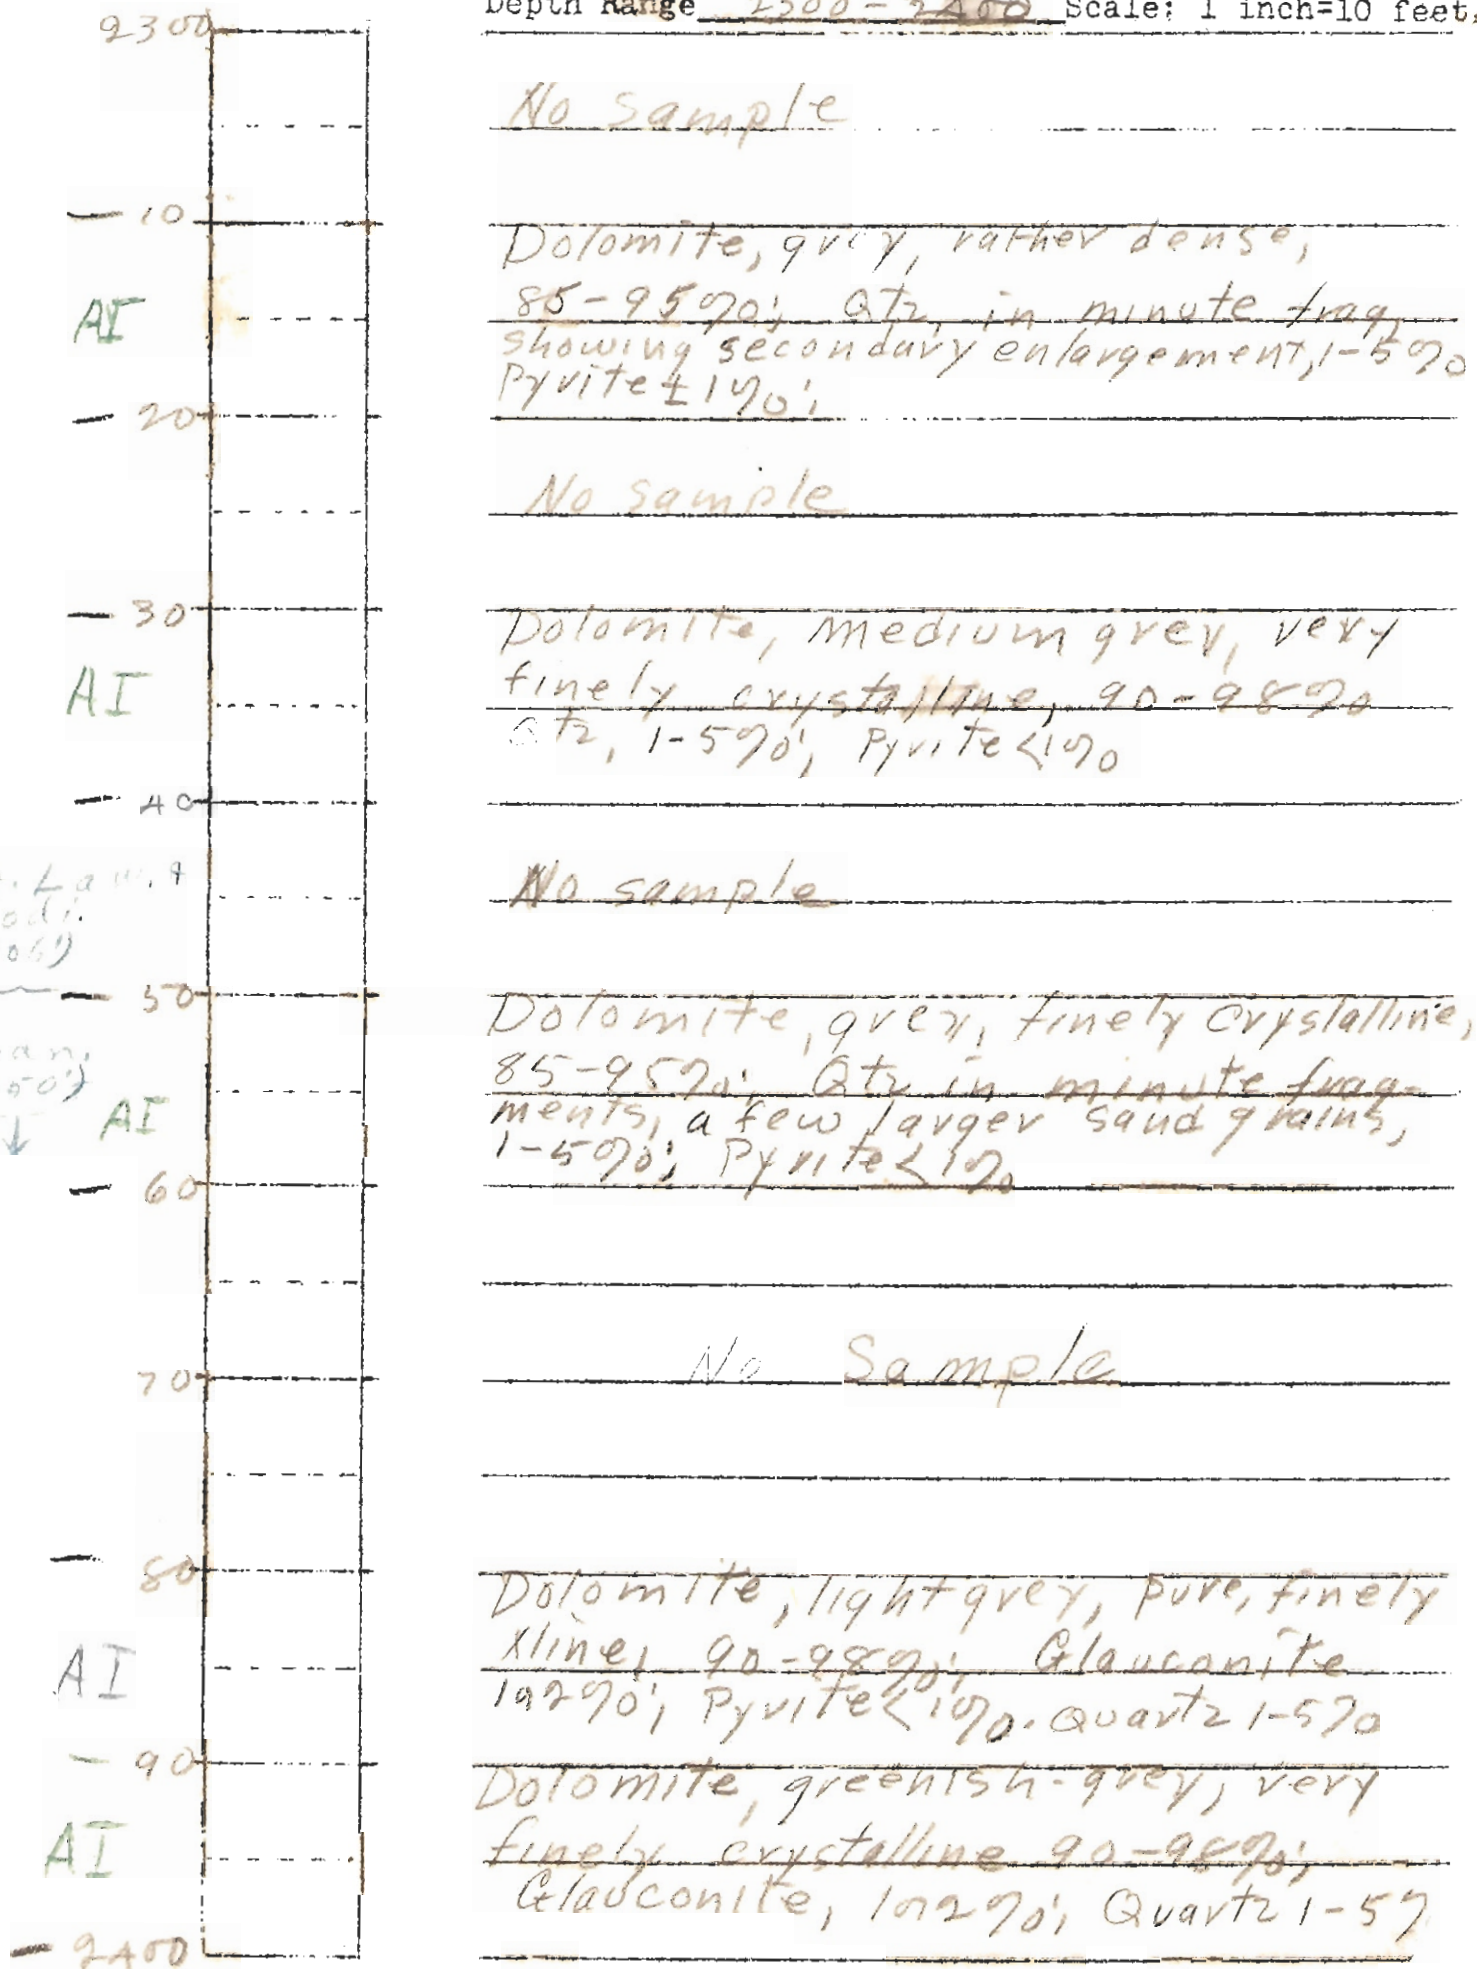 Depth Range 2300 - 2400 Scale: 1 inch=10 feet
2300
No Sample
- 10
Dolomite, grey, rather dense,
AI
85-95%; Qtz, in minute frag,
showing secondary enlargement, 1-5%
Pyrite ± 1%;
- 20
No sample
- 30
Dolomite, medium grey, very
AI
finely crystalline, 90-98%
Qtz, 1-5%; Pyrite <1%
- 40
No sample
- 50
Dolomite, grey, finely crystalline,
85-95%; Qtz in minute frag-
AI
ments, a few larger sand grains,
1-5%; Pyrite < 1%
- 60
No Sample
70
- 80
Dolomite, light grey, pure, finely
AI
xline, 90-98%; Glauconite
1 or 2%; Pyrite < 1%. Quartz 1-5%
- 90
Dolomite, greenish-grey, very
AI
finely crystalline 90-98%;
Glauconite, 1 or 2%; Quartz 1-5%
- 2400